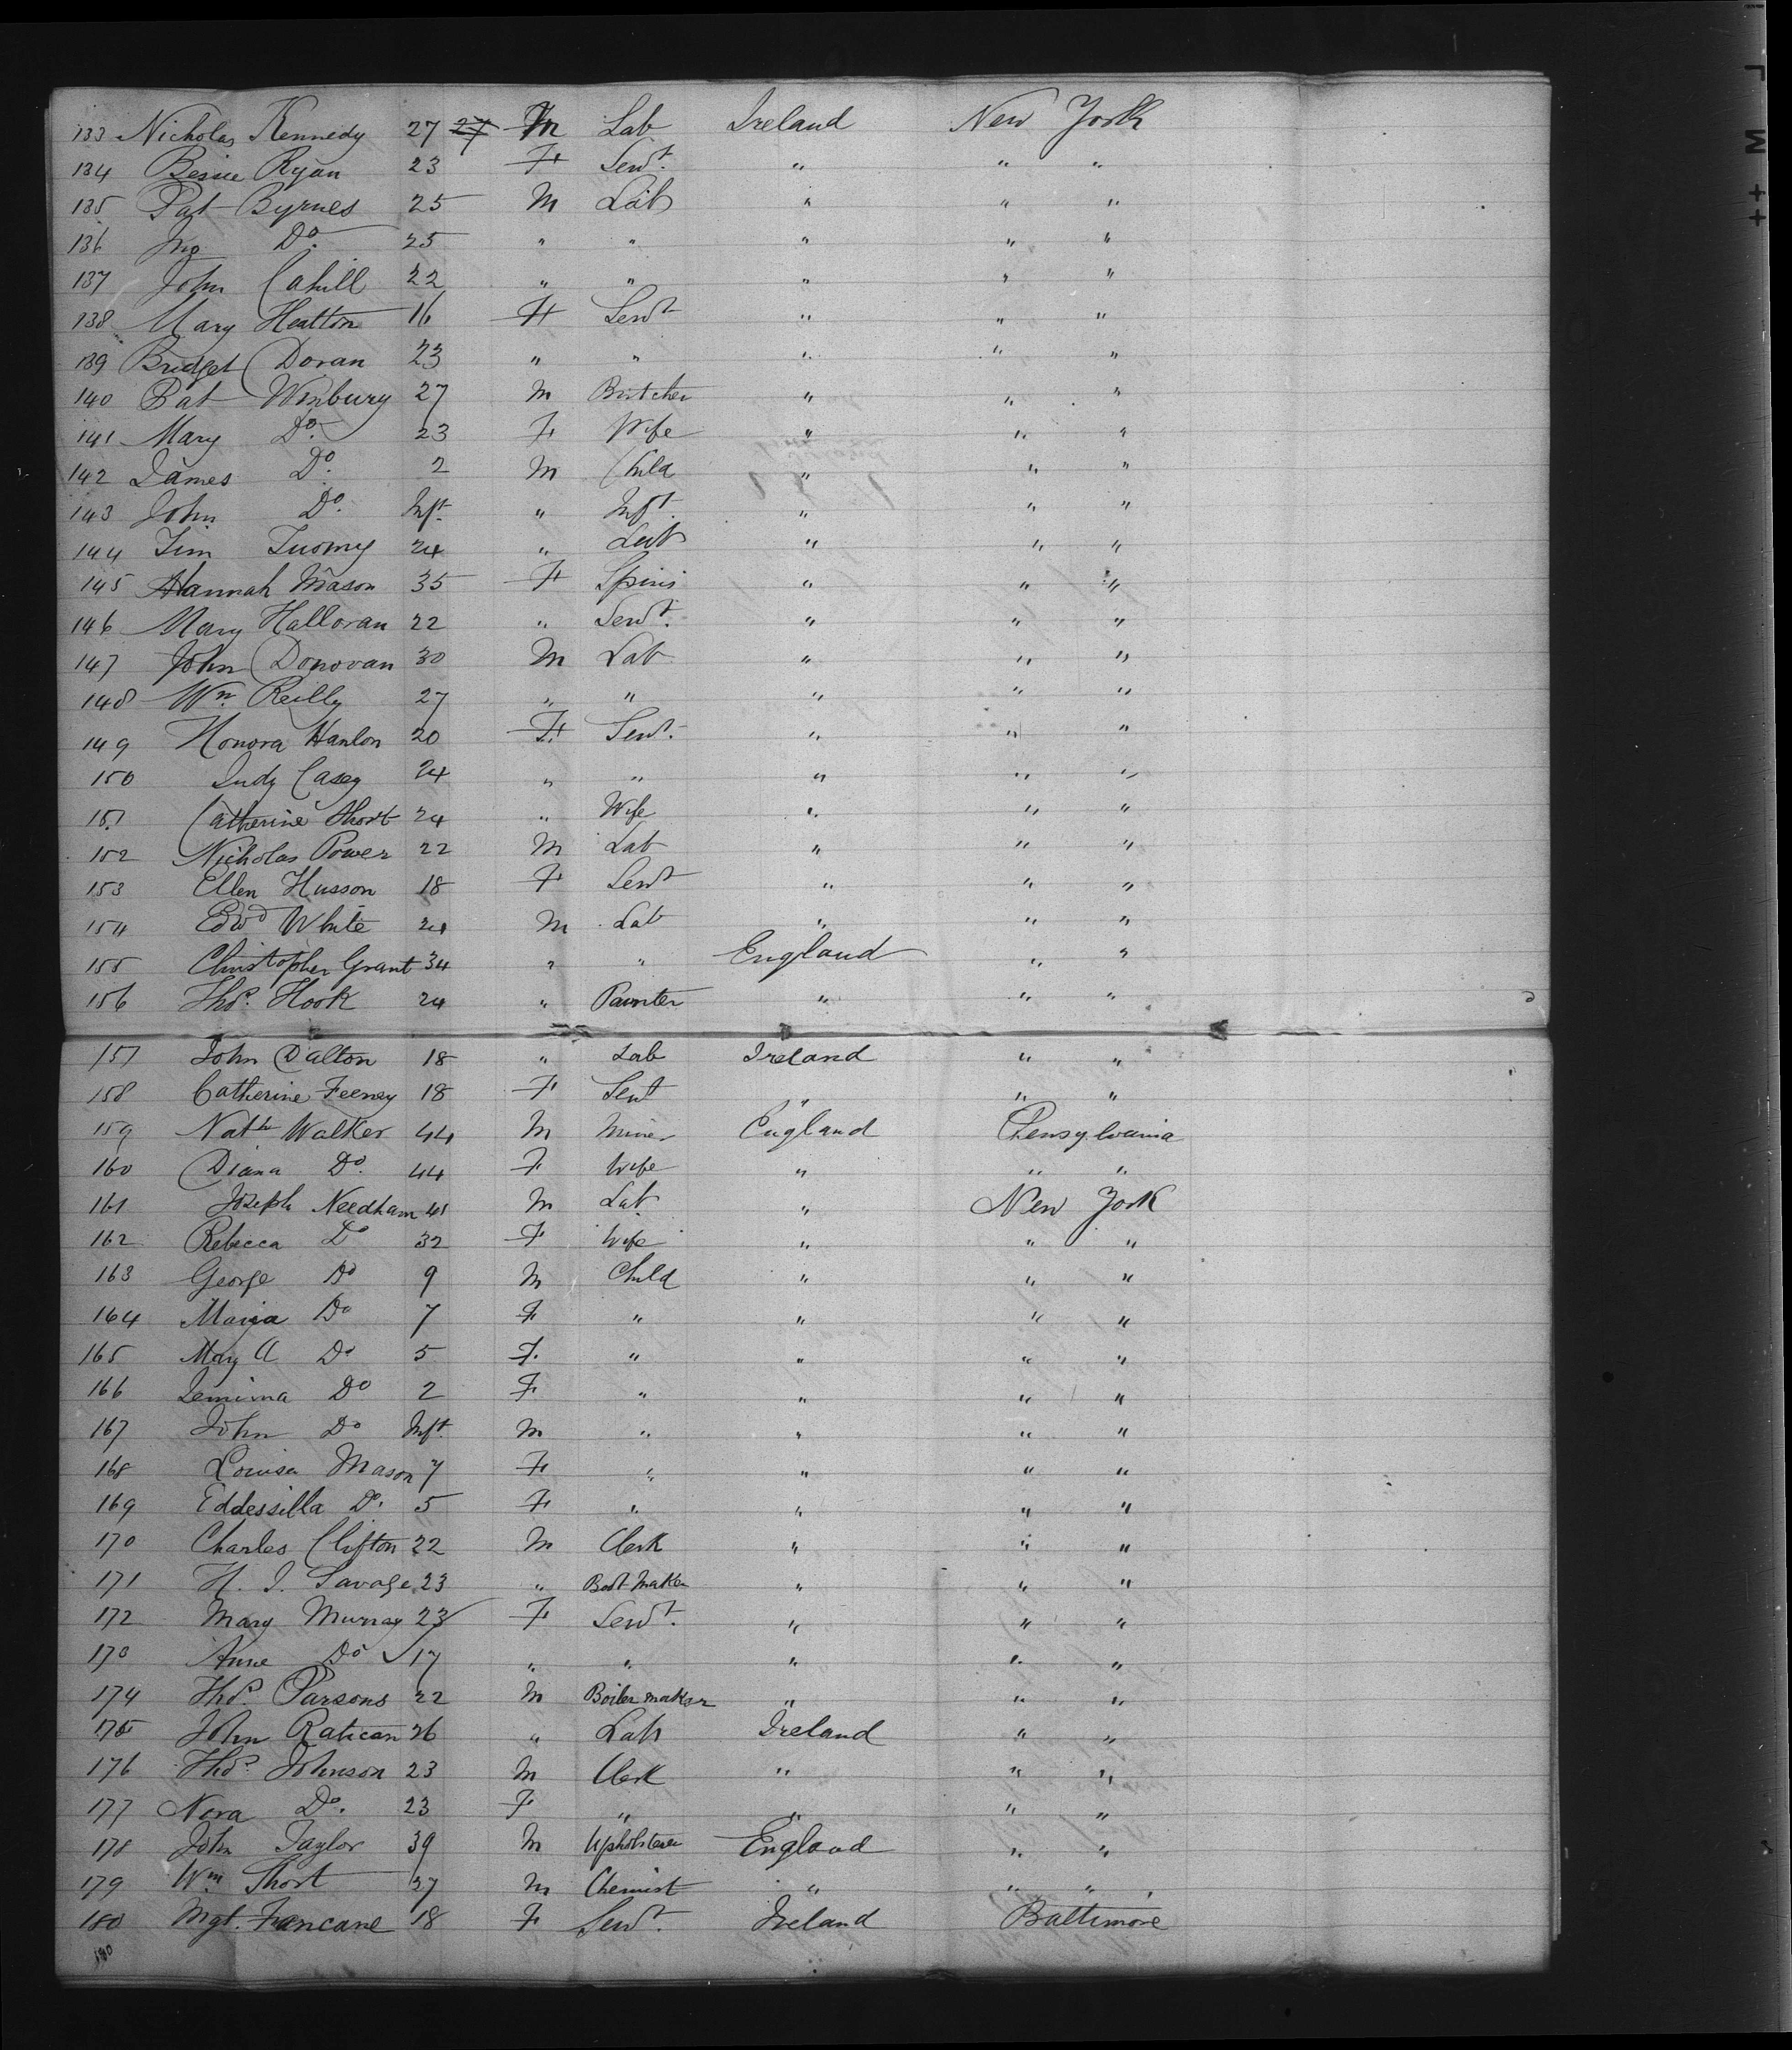 133 Nicholas Kennedy 27 27 M Lab Ireland New York
134 Bessie Ryan 23 F Servt. " " "
135 Pat Byrnes 25 M Lab " " "
136 Jno Do. 25 " " " " "
137 John Cahill 22 " " " " "
138 Mary Heatton 16 F Servt " " "
139 Bridget Doran 23 " " " " "
140 Pat Winbury 27 M Butcher " " "
141 Mary Do. 23 F Wife " " "
142 James Do. 2 M Child " " "
143 John Do. Inft. " Inft. " " "
144 Tim Tuomy 24 " Lab " " "
145 Hannah Mason 35 F Spins " " "
146 Mary Halloran 22 " Servt. " " "
147 John Donovan 30 M Lab " " "
148 Wm. Reilly 27 " " " " "
149 Honora Hanlon 20 F Servt. " " "
150 Judy Casey 24 " " " " "
151 Catherine Short 24 " Wife " " "
152 Nicholas Power 22 M Lab " " "
153 Ellen Husson 18 F Servt " " "
154 Edwd White 24 M Lab " " "
155 Christopher Grant 34 " " England " "
156 Thos. Hook 24 " Painter " " "
157 John Dalton 18 " Lab Ireland " "
158 Catherine Feeney 18 F Servt " " "
159 Nathl Walker 44 M Miner England Pensylvania
160 Diana Do. 44 F Wife " " "
161 Joseph Needham 41 M Lab " New York
162 Rebecca Do 32 F Wife " " "
163 George Do 9 M Child " " "
164 Maria Do 7 F " " " "
165 Mary A Do 5 F. " " " "
166 Jemima Do 2 F " " " "
167 John Do Inft. M " " " "
168 Louisa Mason 7 F " " " "
169 Eddessilla Do. 5 F " " " "
170 Charles Clifton 22 M Clerk " " "
171 H. J. Savage 23 " Boot Maker " " "
172 Mary Murray 23 F Servt. " " "
173 Anne Do 17 " " " " "
174 Thos. Parsons 22 M Boiler maker " " "
175 John Ratican 26 " Lab Ireland " "
176 Thos. Johnson 23 M Clerk " " "
177 Nora Do. 23 F " " " "
178 John Taylor 39 M Upholsterer England " "
179 Wm Short 27 M Chemist " " "
180 Mgt. Francane 18 F Servt. Ireland Baltimore
180